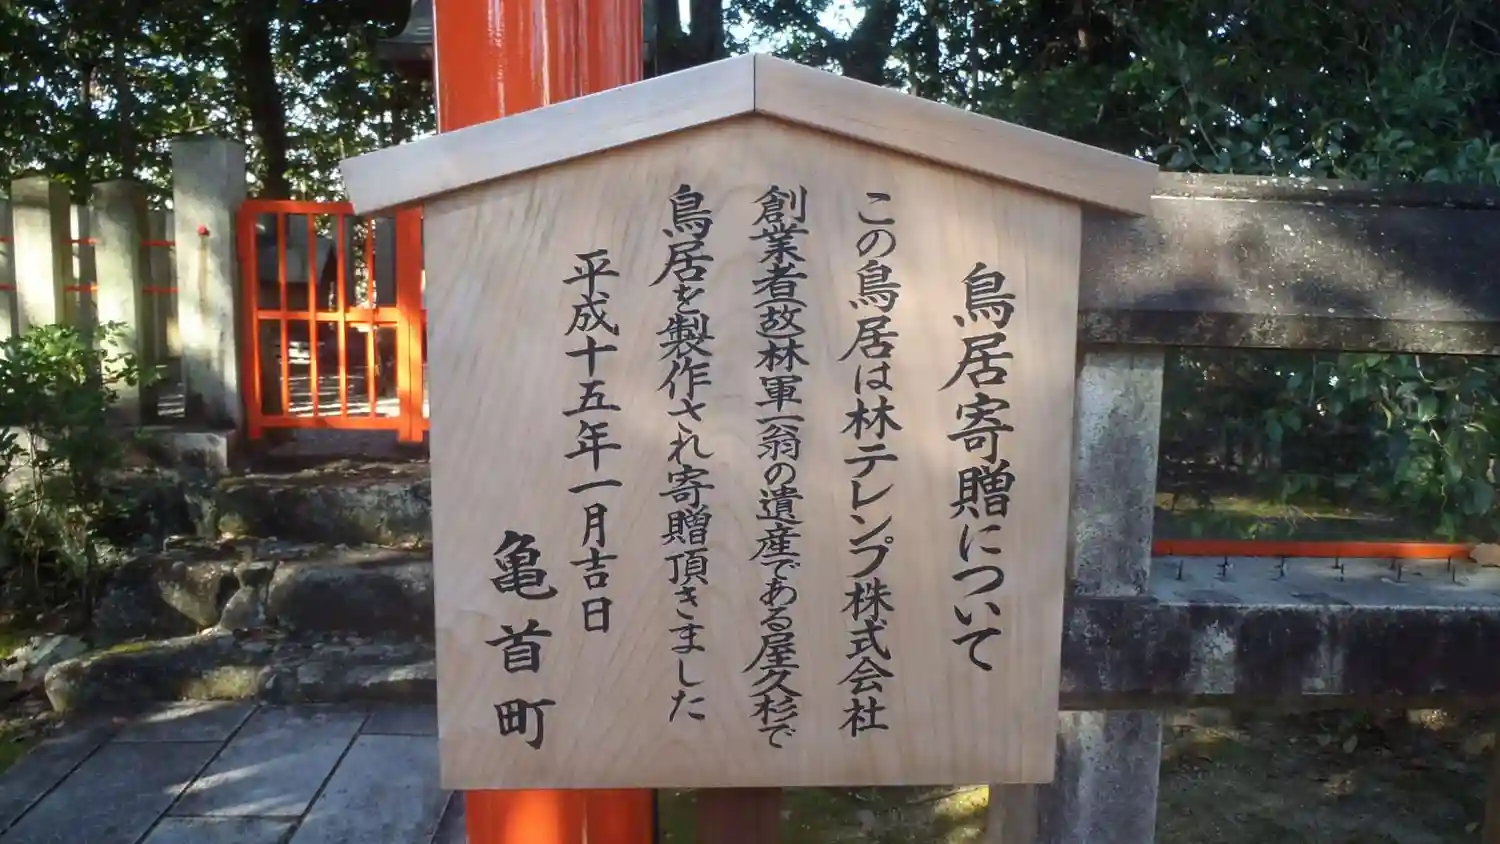 鳥居寄贈について
この鳥居は林テレンプ株式会社
創業者(故)林軍一翁の遺産である屋久杉で
鳥居を製作され寄贈頂きました
平成十五年一月吉日
亀首町